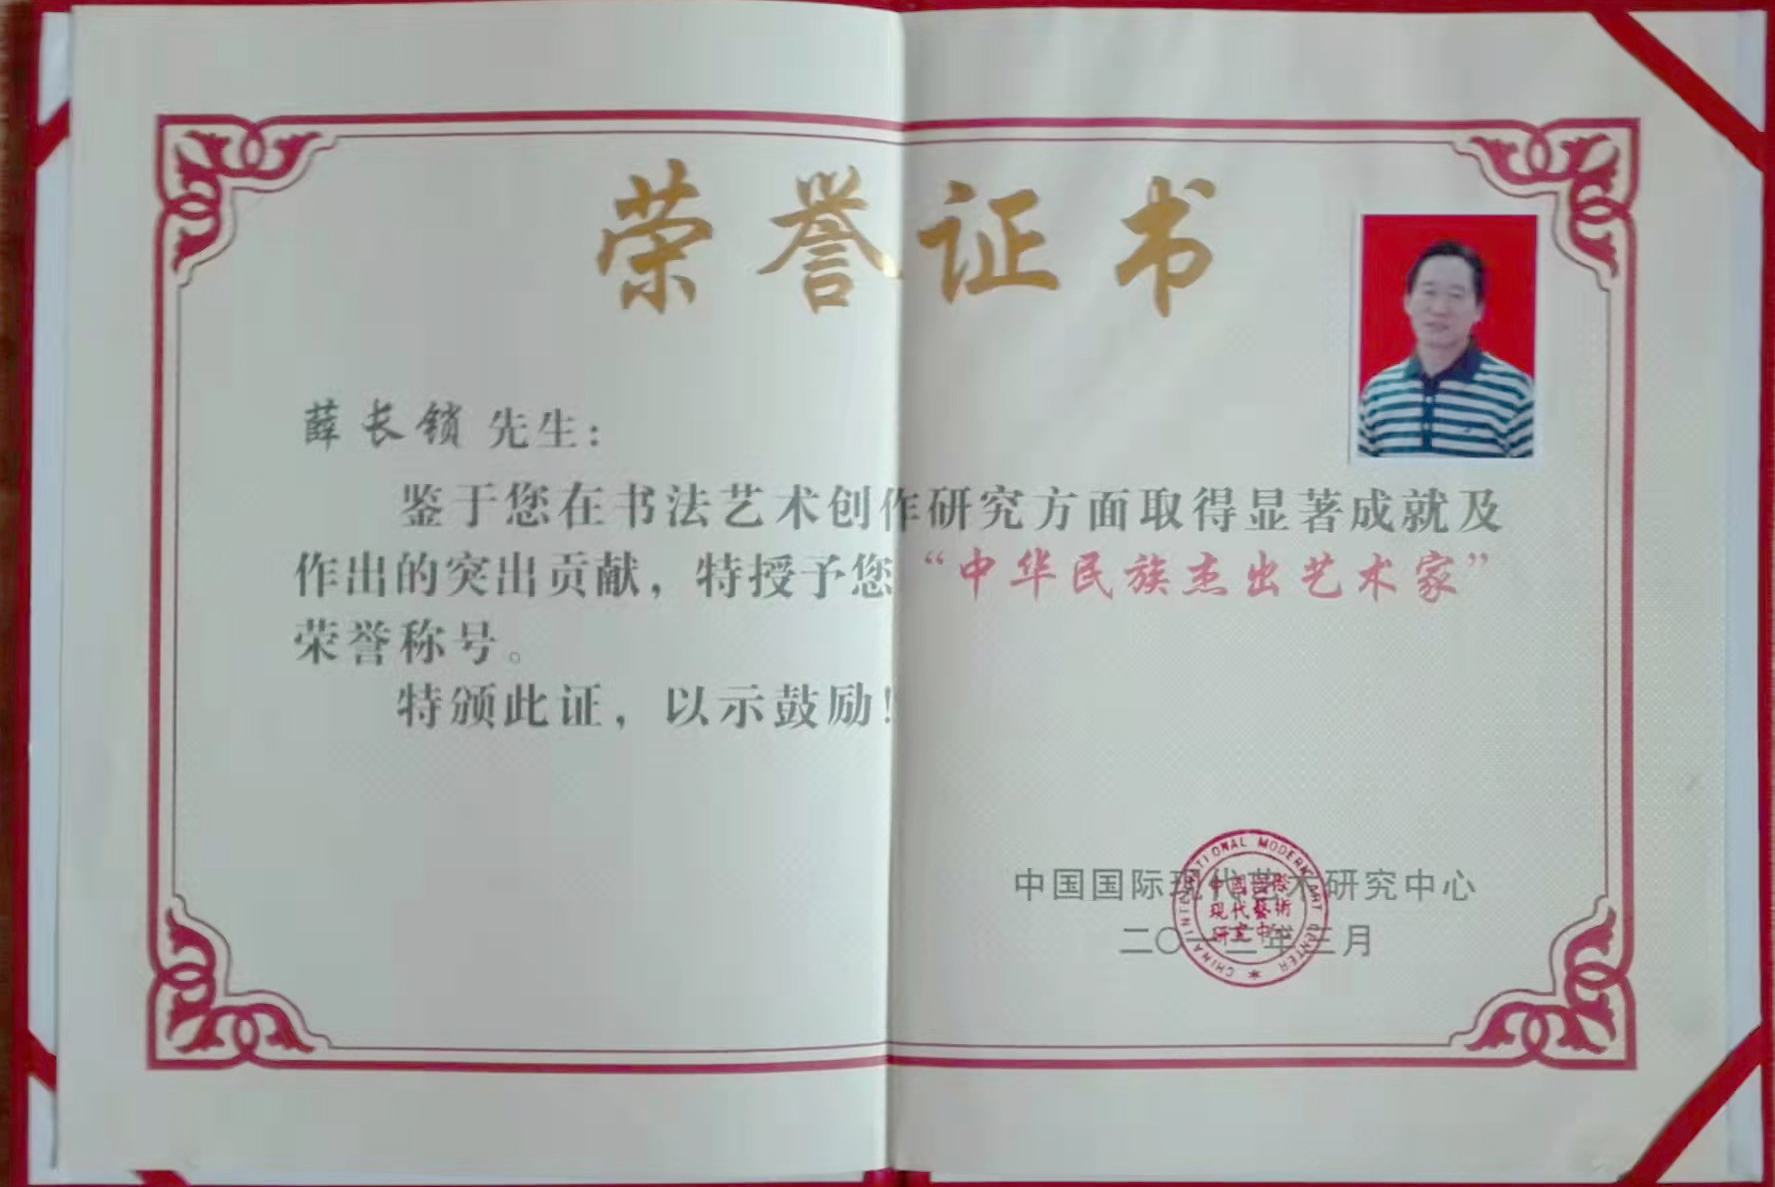 荣誉证书
薛长锁 先生：
鉴于您在书法艺术创作研究方面取得显著成就及
作出的突出贡献，特授予您“中华民族杰出艺术家”
荣誉称号。
特颁此证，以示鼓励！
中国国际现代艺术研究中心
二〇一三年三月
CHINA INTERNATIONAL MODERN ART CENTER
中國國際
現代藝術
研究中心